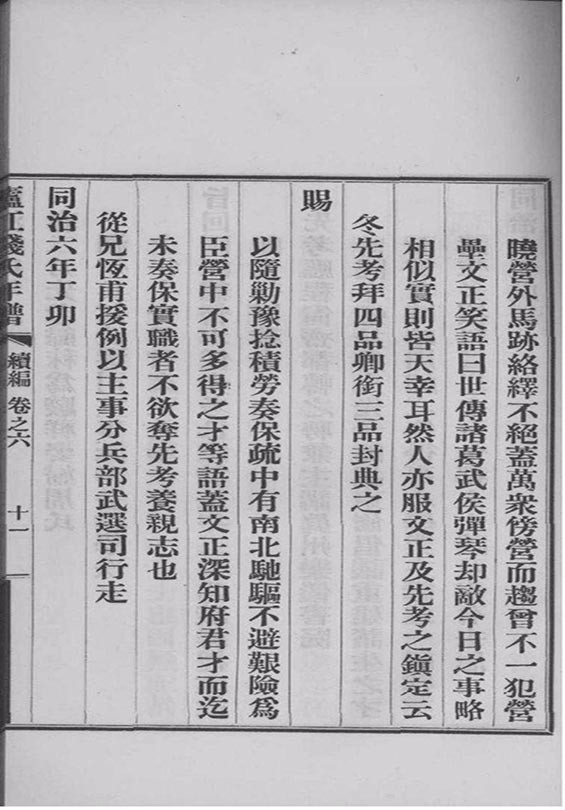 曉營外馬跡絡繹不絕蓋萬衆傍營而趨曾不一犯營
壘文正笑語曰世傳諸葛武侯彈琴却敵今日之事略
相似實則皆天幸耳然人亦服文正及先考之鎭定云
冬先考拜四品卿銜三品封典之
賜
以隨勦豫捻積勞奏保疏中有南北馳驅不避艱險爲
臣營中不可多得之才等語蓋文正深知府君才而迄
未奏保實職者不欲奪先考養親志也
從兄恆甫援例以主事分兵部武選司行走
同治六年丁卯
廬江錢氏年譜 續編 卷之六 十一